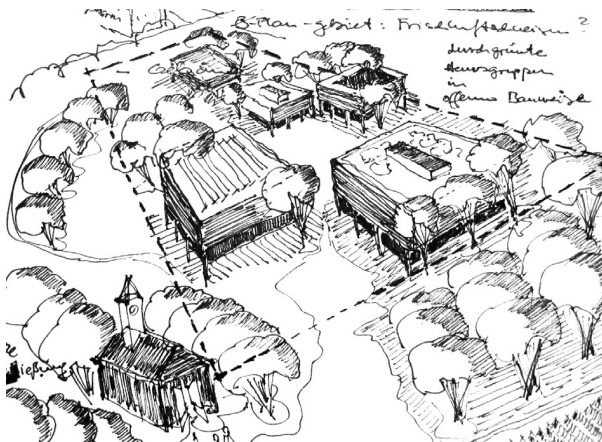 B-Plan-gebiet: Frischluftschneisen?
durchgrünte
Hausgruppen
in
offener Bauweise